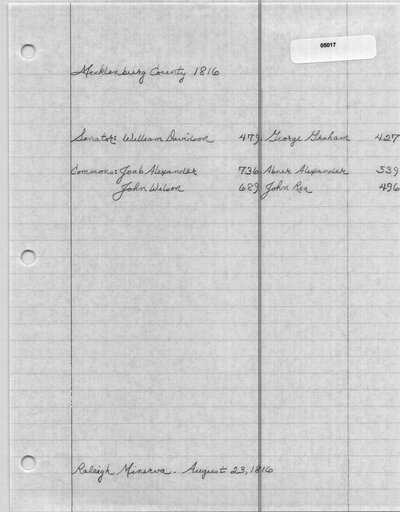 05017
Mecklenburg County 1816
Senator: William Davidson 479. George Graham 427
Commons: Joab Alexander 736. Abner Alexander 539
John Wilson 689 John Rea 496
Raleigh Minerva. August 23, 1816